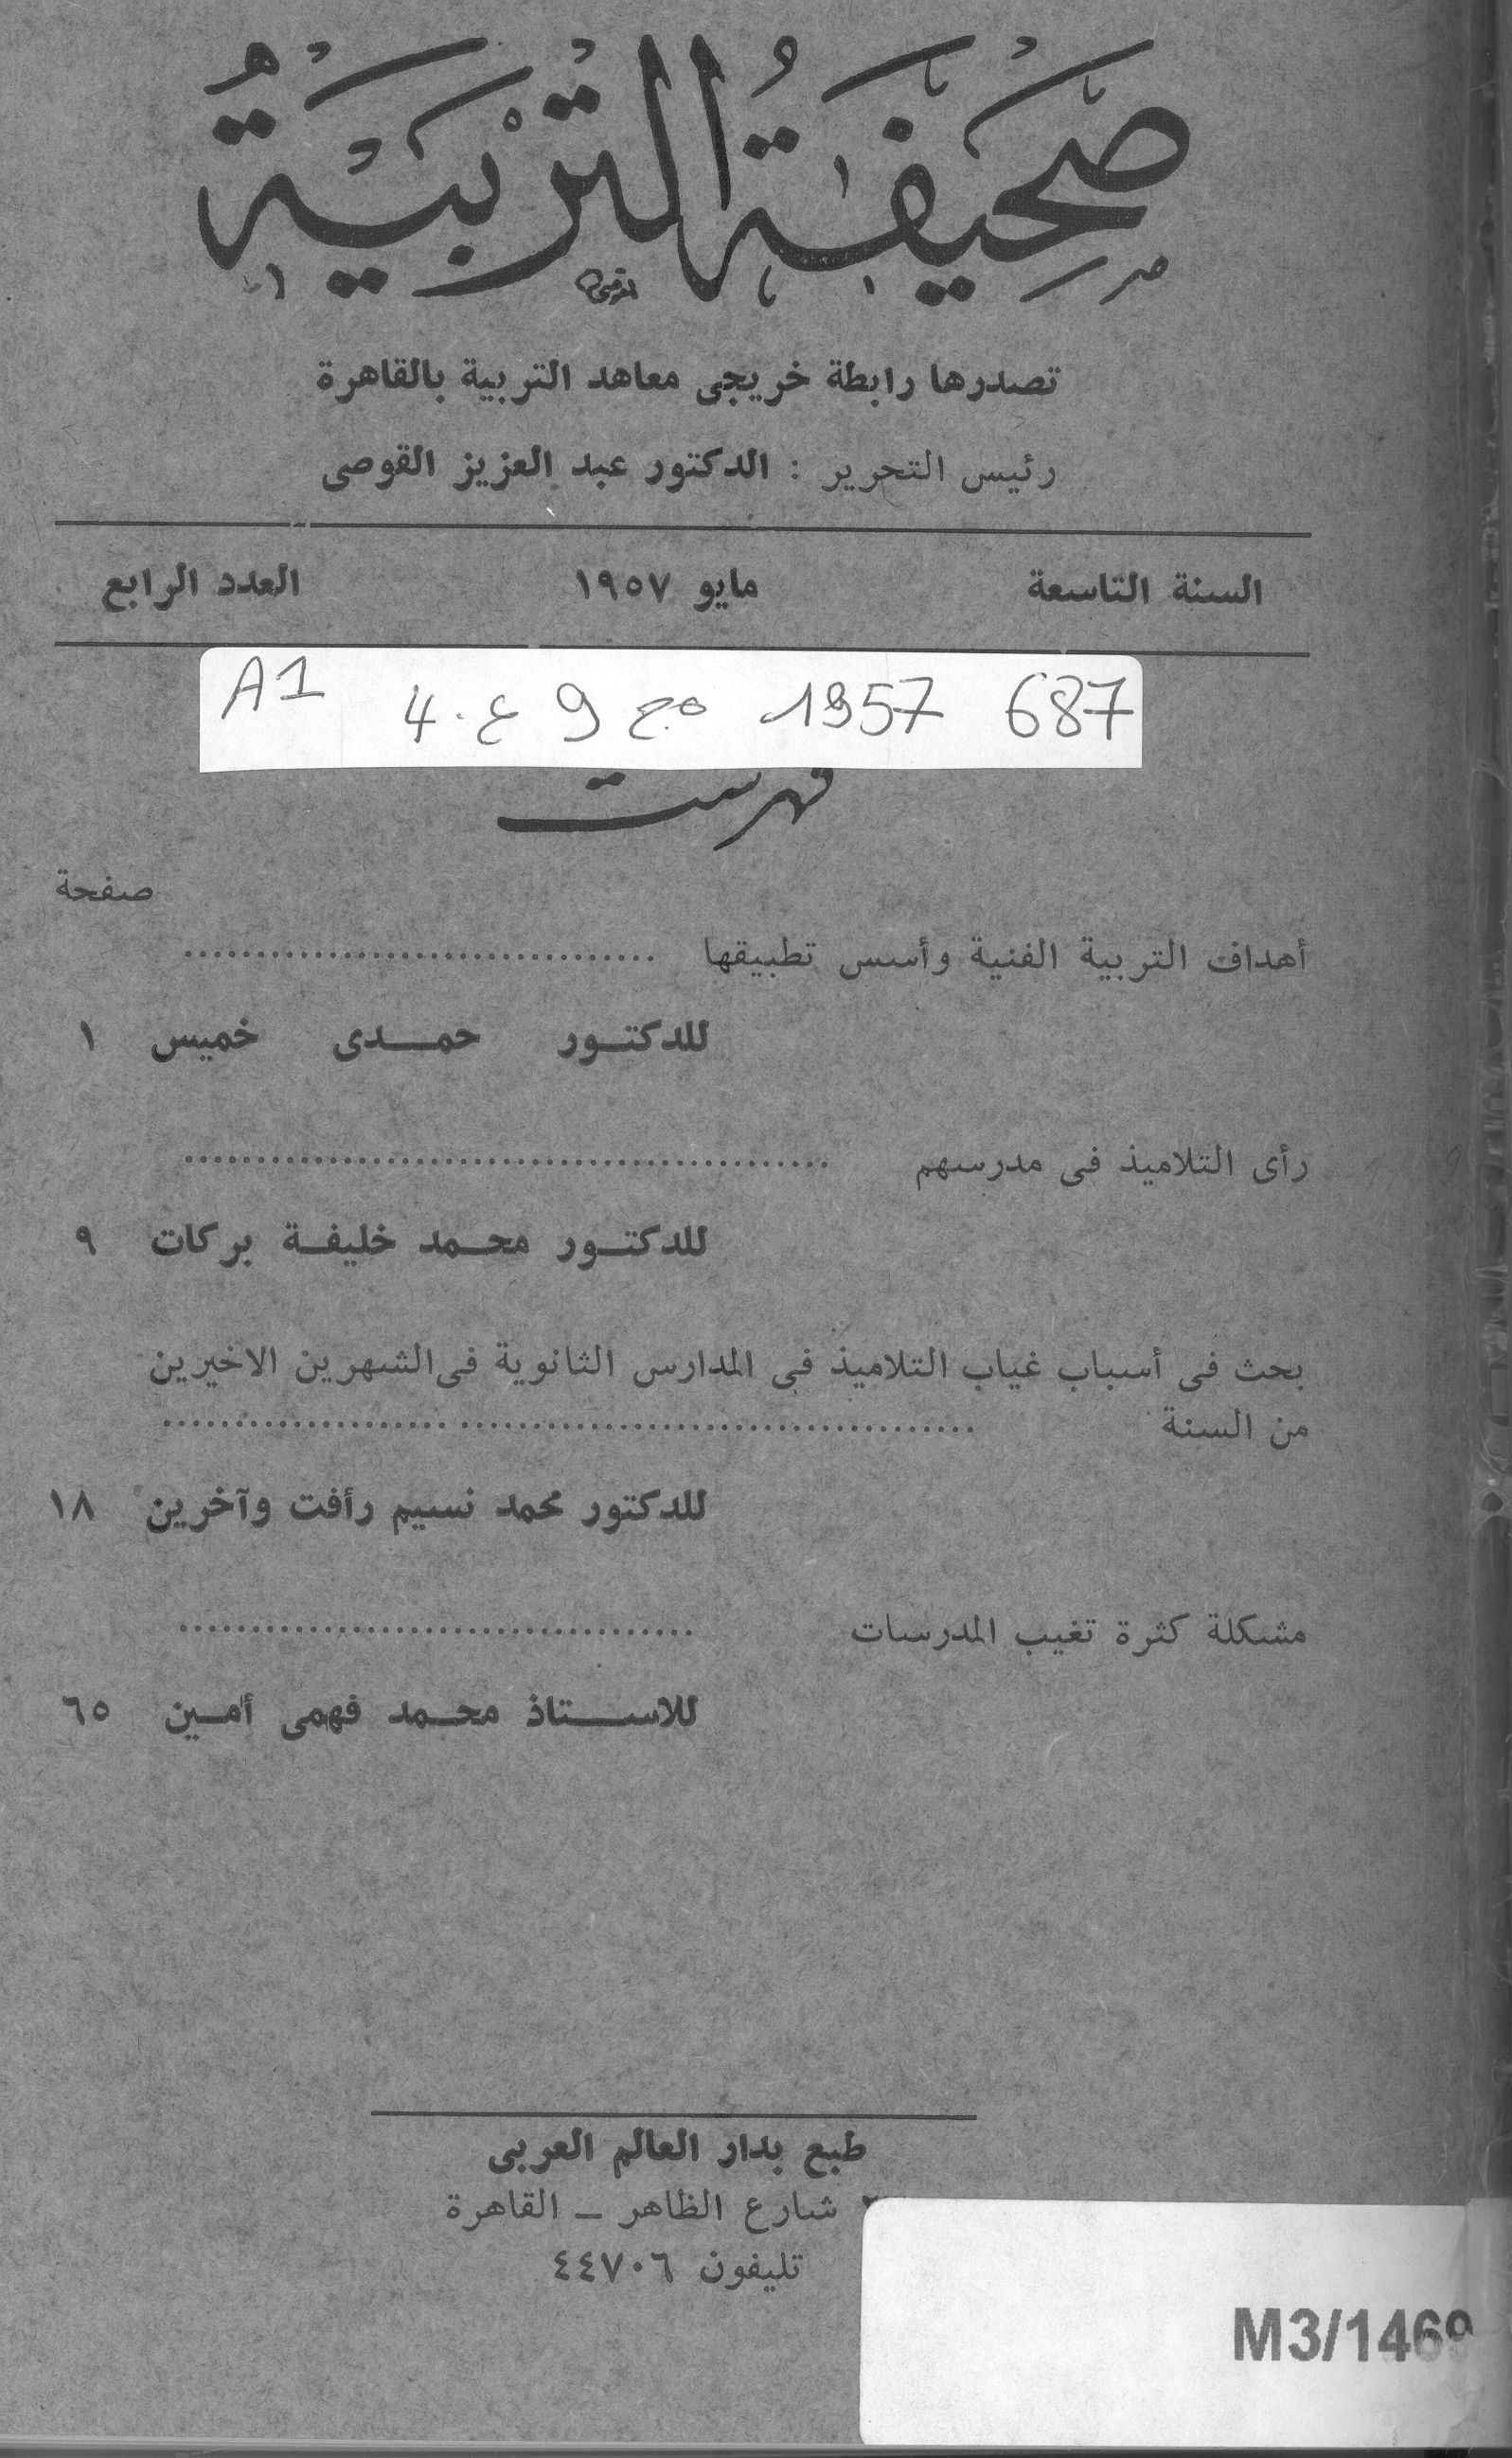 صَحِيفَةُ التَّرْبِيَّةُ
تصدرها رابطة خريجى معاهد التربية بالقاهرة
رئيس التحرير : الدكتور عبد العزيز القوصى
السنة التاسعة مايو ١٩٥٧ العدد الرابع
687 1957 مج 9 ع. 4 A1
فهرست
صفحة
أهداف التربية الفنية وأسس تطبيقها ................................
للدكتـور حمـدى خميس ١
رأى التلاميذ فى مدرسهم ............................................
للدكتـور محـمد خليفـة بركات ٩
بحث فى أسباب غياب التلاميذ فى المدارس الثانوية فى الشهرين الاخيرين
من السنة ........................................................
للدكتور محمد نسيم رأفت وآخرين ١٨
مشكلة كثرة تغيب المدرسات ....................................
للاســتاذ محـمد فهمى أمـين ٦٥
طبع بدار العالم العربى
شارع الظاهر ـ القاهرة
تليفون ٤٤٧٠٦
M3/1469